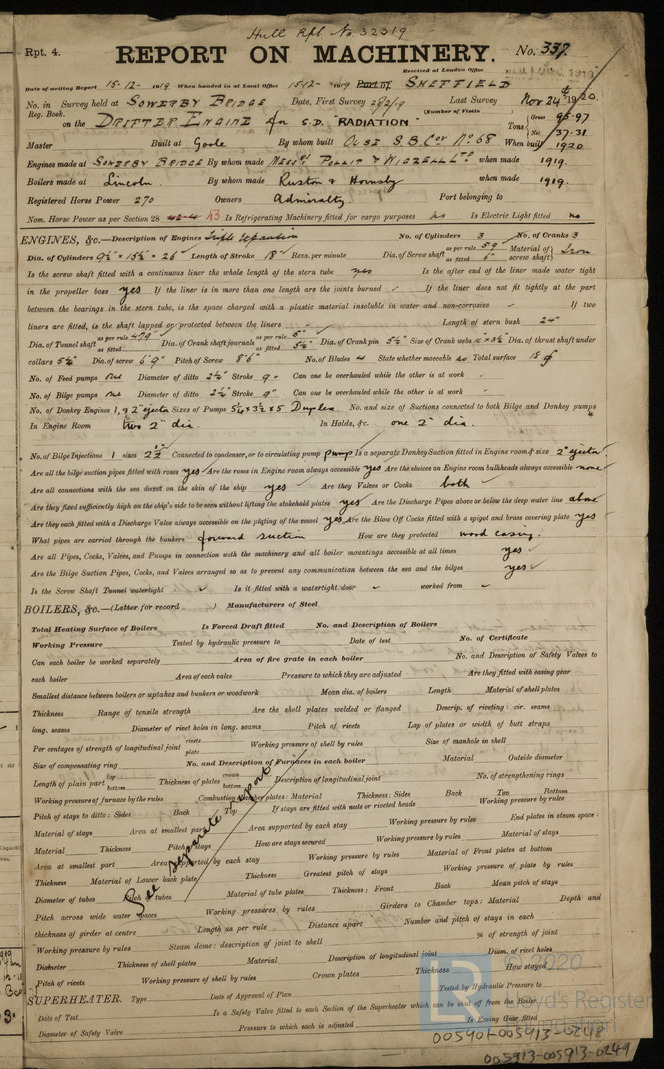 Hull Rpt No. 32319
Rpt. 4.
REPORT ON MACHINERY. No. 337.
Received at London Office
Date of writing Report 15-12-1919 When handed in at Local Office 15-12-1919 Port of SHEFFIELD
No. in Survey held at SOWERBY BRIDGE Date, First Survey 28/2/19 Last Survey Nov 24th 1920.
Reg. Book. (Number of Visits
on the DRIFTER ENGINE for S.D. "RADIATION" Tons Gross 95.97 Net 37.31
Master Built at Goole By whom built OUSE S.B. Coy No 68 When built 1920
Engines made at SOWERBY BRIDGE By whom made MESSRS POLLIT & WIGZELL LTD when made 1919.
Boilers made at Lincoln By whom made Ruston & Hornsby when made 1919.
Registered Horse Power 270 Owners Admiralty Port belonging to
Nom. Horse Power as per Section 28 43 Is Refrigerating Machinery fitted for cargo purposes No Is Electric Light fitted no
ENGINES, &c.—Description of Engines Triple Expansion No. of Cylinders 3 No. of Cranks 3
Dia. of Cylinders 9½" × 15½" × 26" Length of Stroke 18" Revs. per minute Dia. of Screw shaft as per rule 5.9" as fitted 6" Material of screw shaft Iron
Is the screw shaft fitted with a continuous liner the whole length of the stern tube yes Is the after end of the liner made water tight
in the propeller boss yes If the liner is in more than one length are the joints burned If the liner does not fit tightly at the part
between the bearings in the stern tube, is the space charged with a plastic material insoluble in water and non-corrosive If two
liners are fitted, is the shaft lapped or protected between the liners Length of stern bush 24"
Dia. of Tunnel shaft as per rule 4.79" as fitted Dia. of Crank shaft journals as per rule 5" as fitted 5½" Dia. of Crank pin 5½" Size of Crank webs × 3½ Dia. of thrust shaft under
collars 5½" Dia. of screw 6'9" Pitch of Screw 8'6" No. of Blades 4 State whether moveable no Total surface 18
No. of Feed pumps one Diameter of ditto 2½" Stroke 9" Can one be overhauled while the other is at work
No. of Bilge pumps one Diameter of ditto 2½" Stroke 9" Can one be overhauled while the other is at work
No. of Donkey Engines 1, & 2" ejector Sizes of Pumps 5¼ × 3½ × 5 Duplex No. and size of Suctions connected to both Bilge and Donkey pumps
In Engine Room two 2" dia. In Holds, &c. one 2" dia.
No. of Bilge Injections 1 sizes 2½ Connected to condenser, or to circulating pump pump Is a separate Donkey Suction fitted in Engine room & size 2" ejector
Are all the bilge suction pipes fitted with roses yes Are the roses in Engine room always accessible yes Are the sluices on Engine room bulkheads always accessible none
Are all connections with the sea direct on the skin of the ship yes Are they Valves or Cocks both
Are they fixed sufficiently high on the ship's side to be seen without lifting the stokehold plates yes Are the Discharge Pipes above or below the deep water line above
Are they each fitted with a Discharge Valve always accessible on the plating of the vessel yes Are the Blow Off Cocks fitted with a spigot and brass covering plate yes
What pipes are carried through the bunkers forward suction How are they protected wood casing.
Are all Pipes, Cocks, Valves, and Pumps in connection with the machinery and all boiler mountings accessible at all times yes
Are the Bilge Suction Pipes, Cocks, and Valves arranged so as to prevent any communication between the sea and the bilges yes
Is the Screw Shaft Tunnel watertight Is it fitted with a watertight door worked from
BOILERS, &c.—(Letter for record ) Manufacturers of Steel
Total Heating Surface of Boilers Is Forced Draft fitted No. and Description of Boilers
Working Pressure Tested by hydraulic pressure to Date of test No. of Certificate
Can each boiler be worked separately Area of fire grate in each boiler No. and Description of Safety Valves to
each boiler Area of each valve Pressure to which they are adjusted Are they fitted with easing gear
Smallest distance between boilers or uptakes and bunkers or woodwork Mean dia. of boilers Length Material of shell plates
Thickness Range of tensile strength Are the shell plates welded or flanged Descrip. of riveting: cir. seams
long. seams Diameter of rivet holes in long. seams Pitch of rivets Lap of plates or width of butt straps
Per centages of strength of longitudinal joint rivets plate Working pressure of shell by rules Size of manhole in shell
Size of compensating ring No. and Description of Furnaces in each boiler Material Outside diameter
Length of plain part top bottom Thickness of plates crown bottom Description of longitudinal joint No. of strengthening rings
Working pressure of furnace by the rules Combustion chamber plates: Material Thickness: Sides Back Top Bottom
Pitch of stays to ditto: Sides Back Top If stays are fitted with nuts or riveted heads Working pressure by rules
Material of stays Area at smallest part Area supported by each stay Working pressure by rules End plates in steam space:
Material Thickness Pitch of stays How are stays secured Working pressure by rules Material of stays
Area at smallest part Area supported by each stay Working pressure by rules Material of Front plates at bottom
Thickness Material of Lower back plate Thickness Greatest pitch of stays Working pressure of plate by rules
Diameter of tubes Pitch of tubes Material of tube plates Thickness: Front Back Mean pitch of stays
Pitch across wide water spaces Working pressures by rules Girders to Chamber tops: Material Depth and
thickness of girder at centre Length as per rule Distance apart Number and pitch of stays in each
Working pressure by rules Steam dome: description of joint to shell % of strength of joint
Diameter Thickness of shell plates Material Description of longitudinal joint Diam. of rivet holes
Pitch of rivets Working pressure of shell by rules Crown plates Thickness How stayed
See separate report
SUPERHEATER. Type Date of Approval of Plan Tested by Hydraulic Pressure to
Date of Test Is a Safety Valve fitted to each Section of the Superheater which can be shut off from the Boiler
Diameter of Safety Valve Pressure to which each is adjusted Is Easing Gear fitted
© 2020
Lloyd's Register
Foundation
005901-005913-0248
005913-005913-0249